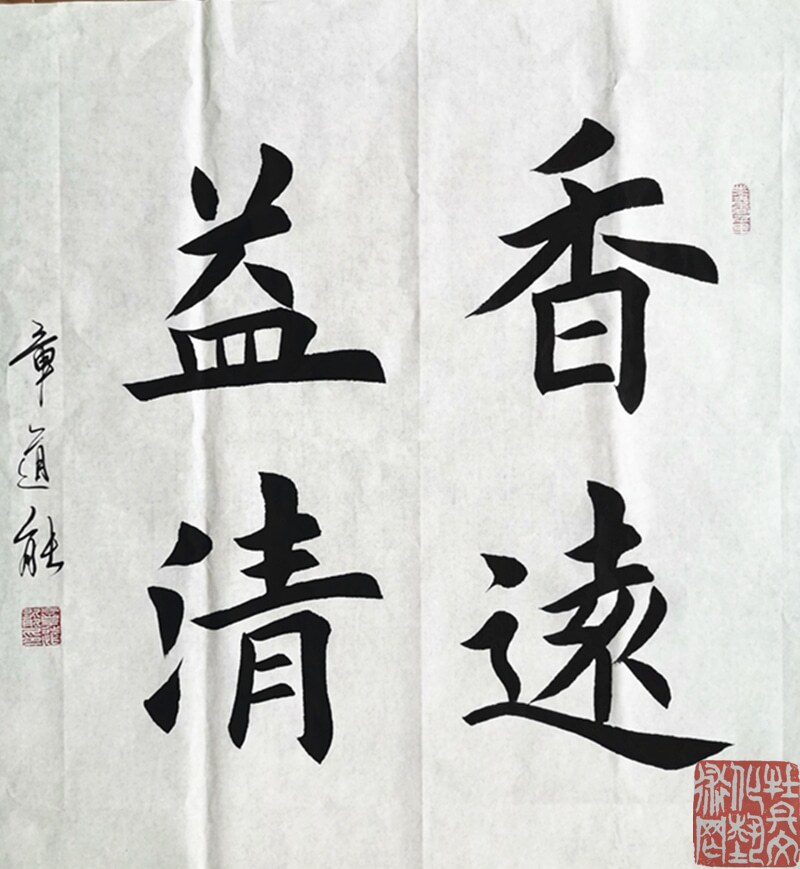 香遠
益清
章道能